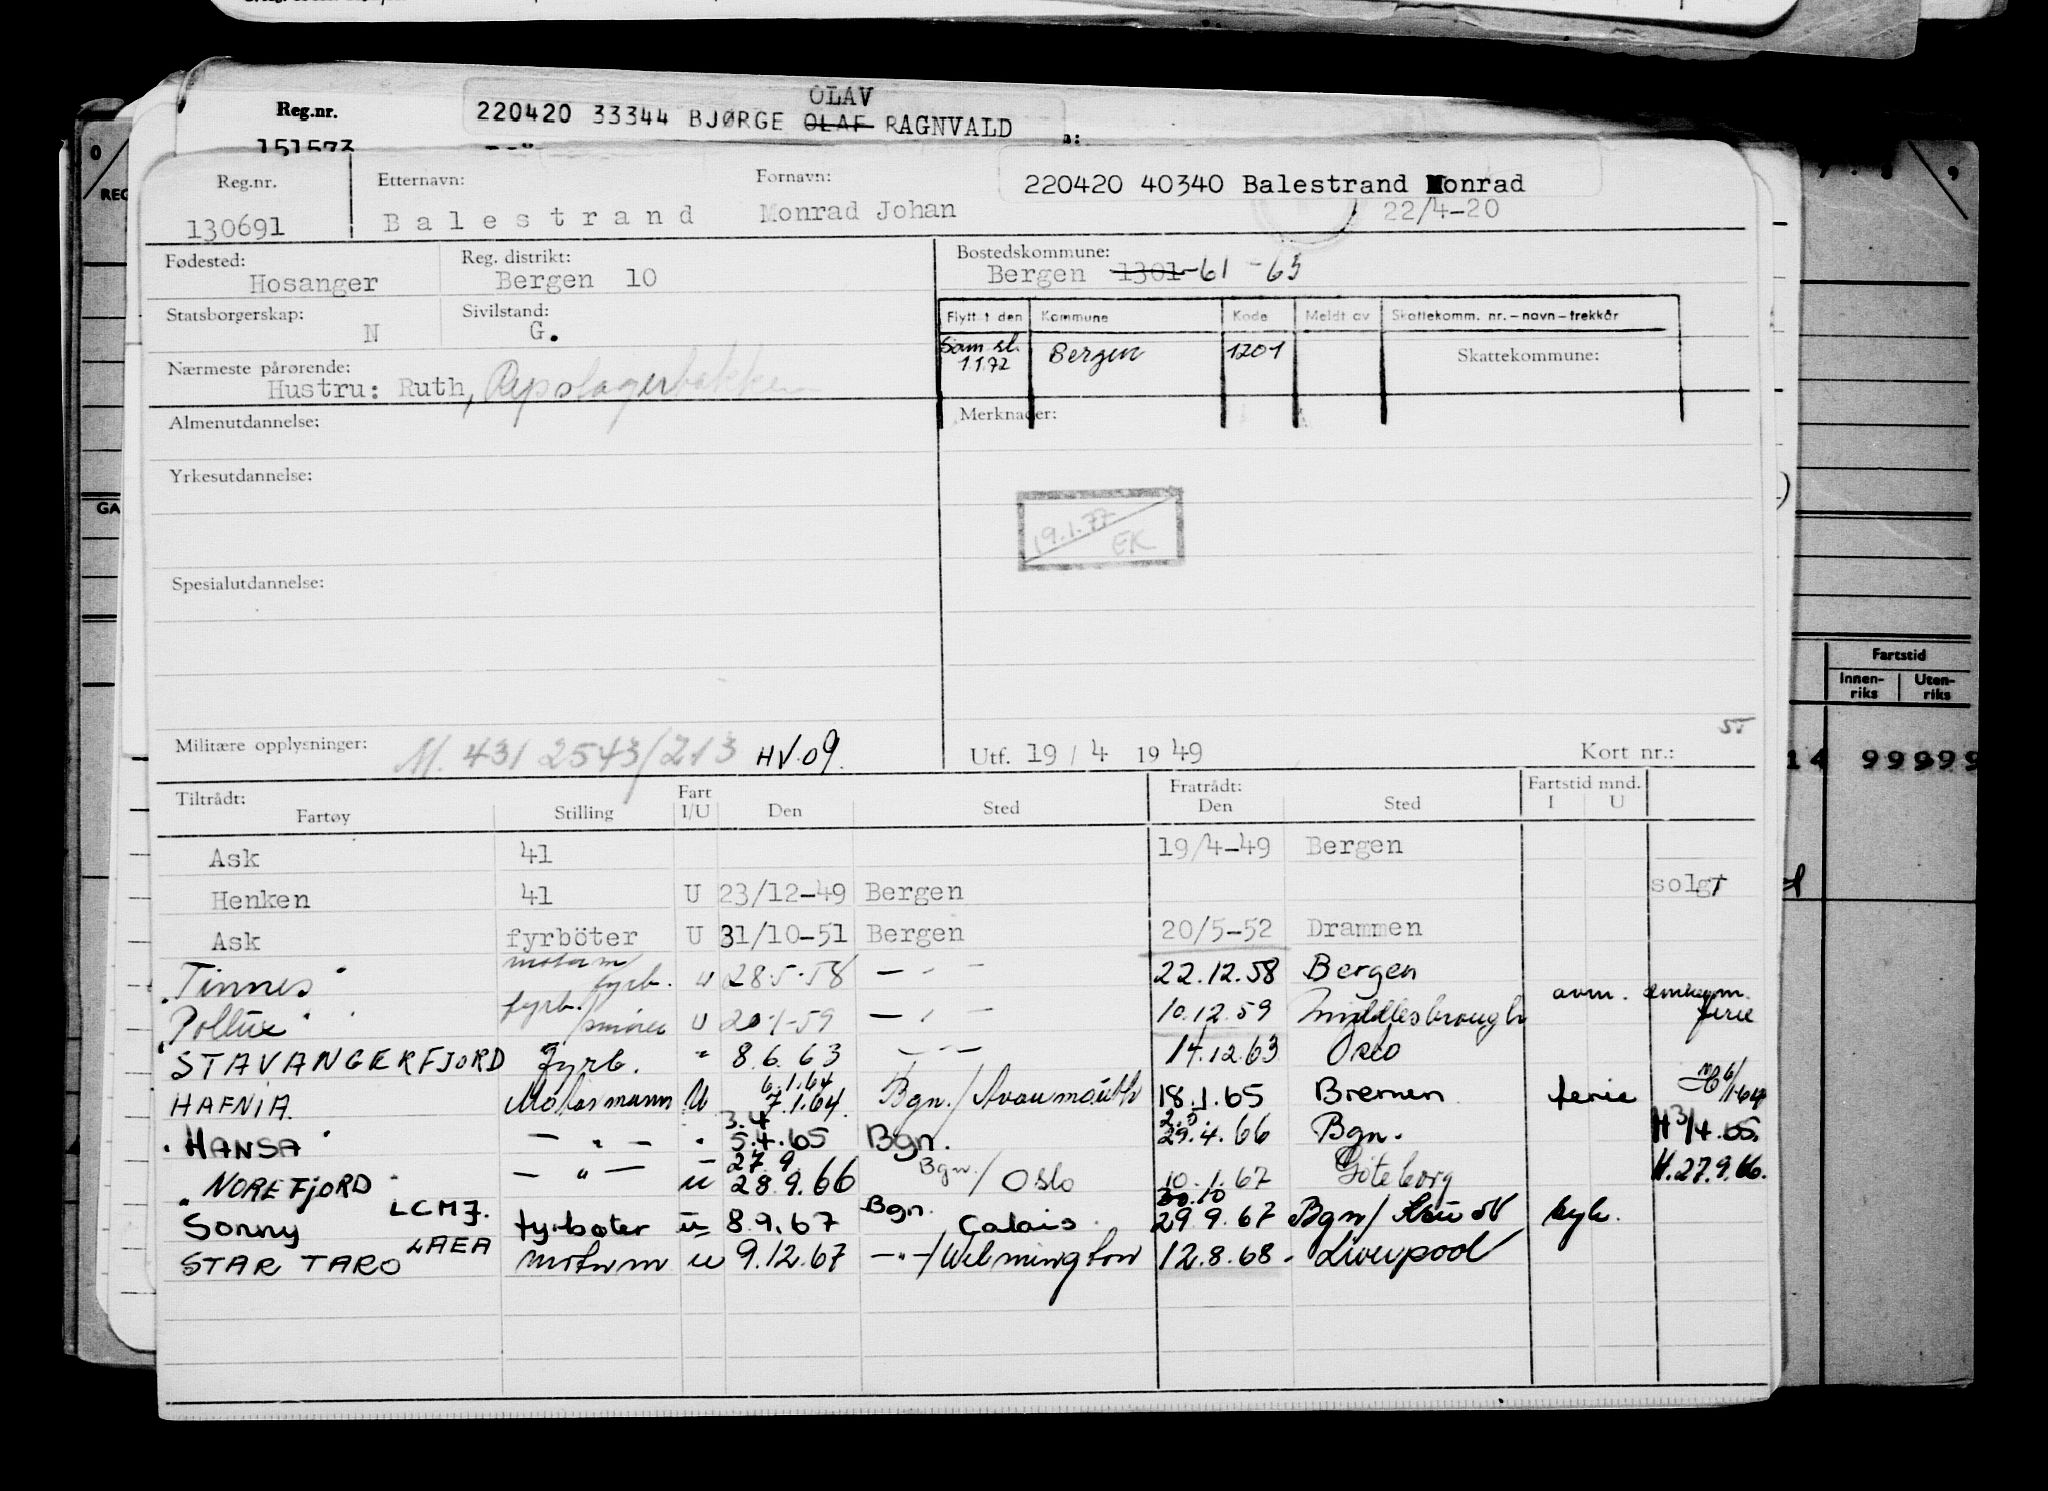 Reg.nr.
OLAV
220420 33344 BJØRGE OLAF RAGNVALD
151573
Reg.nr. Etternavn: Fornavn: 220420 40340 Balestrand Monrad
130691 Balestrand Monrad Johan 22/4-20
Fødested: Reg. distrikt: Bostedskommune:
Hosanger Bergen 10 Bergen 1301-61-63
Statsborgerskap: Sivilstand:
N G.
Flytt t den Kommune Kode Meldt av Skattekomm. nr.-navn-trekkår
Sam sl. 1.1.72 Bergen 1201 Skattekommune:
Nærmeste pårørende:
Hustru: Ruth, Repslagerbakken
Almenutdannelse: Merknader:
Yrkesutdannelse:
19.1.77
EK
Spesialutdannelse:
Militære opplysninger: M. 431 2543/213 HV.09. Utf. 19/4 1949 Kort nr.:
Tiltrådt: Fratrådt: Fartstid mnd.
Fartøy Stilling Fart I/U Den Sted Den Sted I U
Ask 41 19/4-49 Bergen
Henken 41 U 23/12-49 Bergen solgt
Ask fyrböter U 31/10-51 Bergen 20/5-52 Drammen
Tinnes motorm/fyrb. U 28.5.58 — " — 22.12.58 Bergen
Pollux fyrb./smører U 20-1-59 — " — 10.12.59 Middlesbrough avm. ferie
STAVANGERFJORD Fyrb. " 8.6.63 — " — 14.12.63 Oslo
HAFNIA Motormann U 6.1.64 7.1.64 Bgn./Avonmouth 18.1.65 Bremen ferie
HANSA — " — " 3.4 5.4.65 Bgn. 29.4.66 Bgn. H 3/4.65.
NOREFJORD — " — U 27.9 28.9.66 Bgn./Oslo 10.1.67 Göteborg H.27.9.66.
Sonny LCMJ. fyrbøter U 8.9.67 Bgn. Calais 30.10 29.9.67 Bgn/ syk.
STAR TARO LAEA motorm U 9.12.67 —"—/Wilmington 12.8.68 - Liverpool
Fartstid
Innenriks Utenriks
14 99999